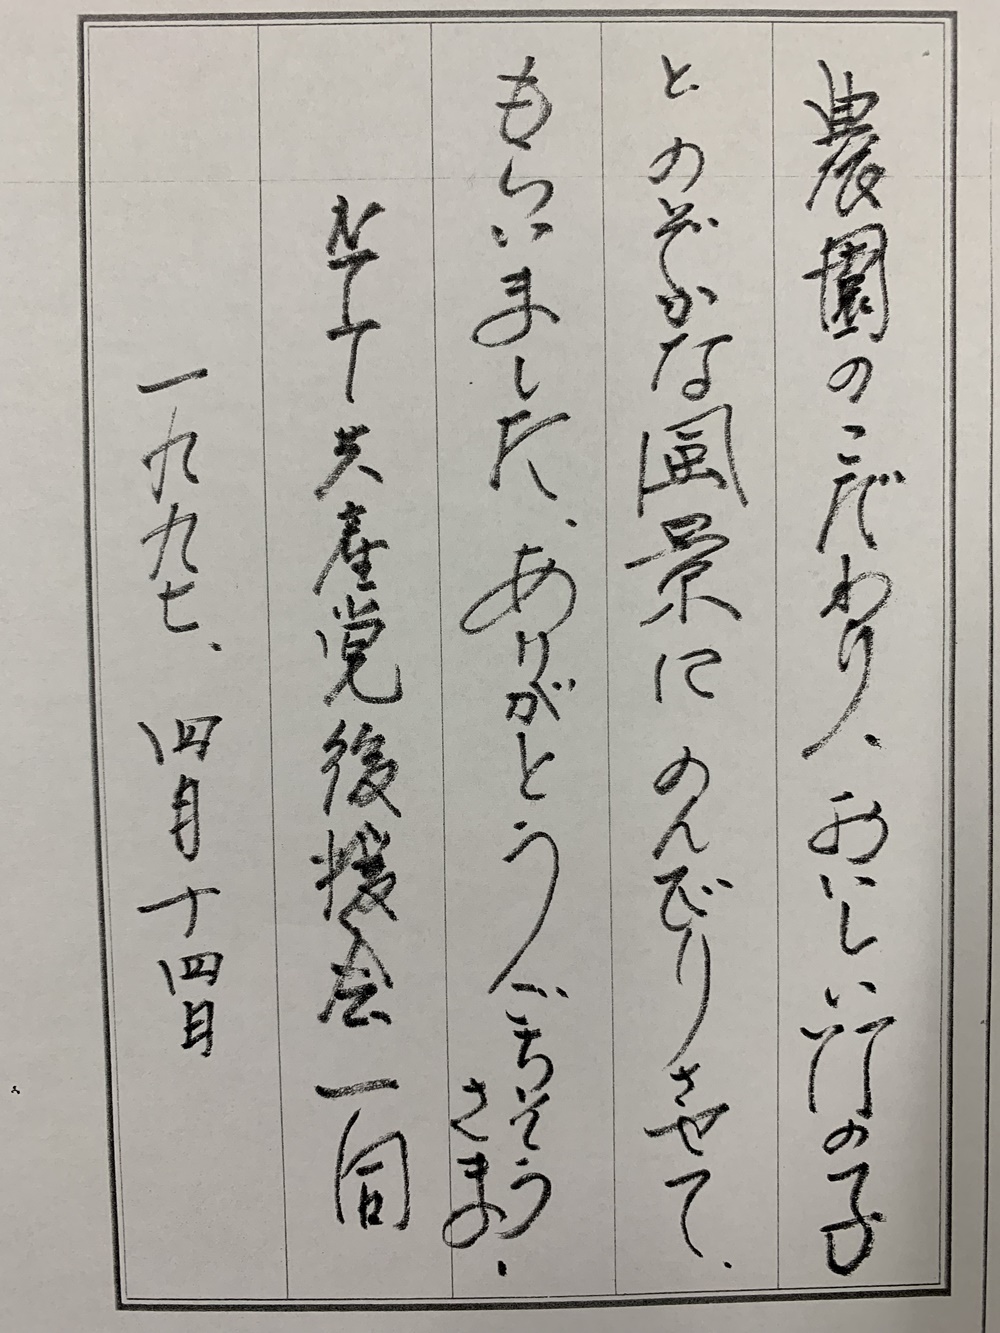 農園のこだわり、おいしい竹の子
とのどかな風景にのんびりさせて、
もらいました、ありがとう、ごちそうさま、
共産党後援会一同
一九九七、四月十四日